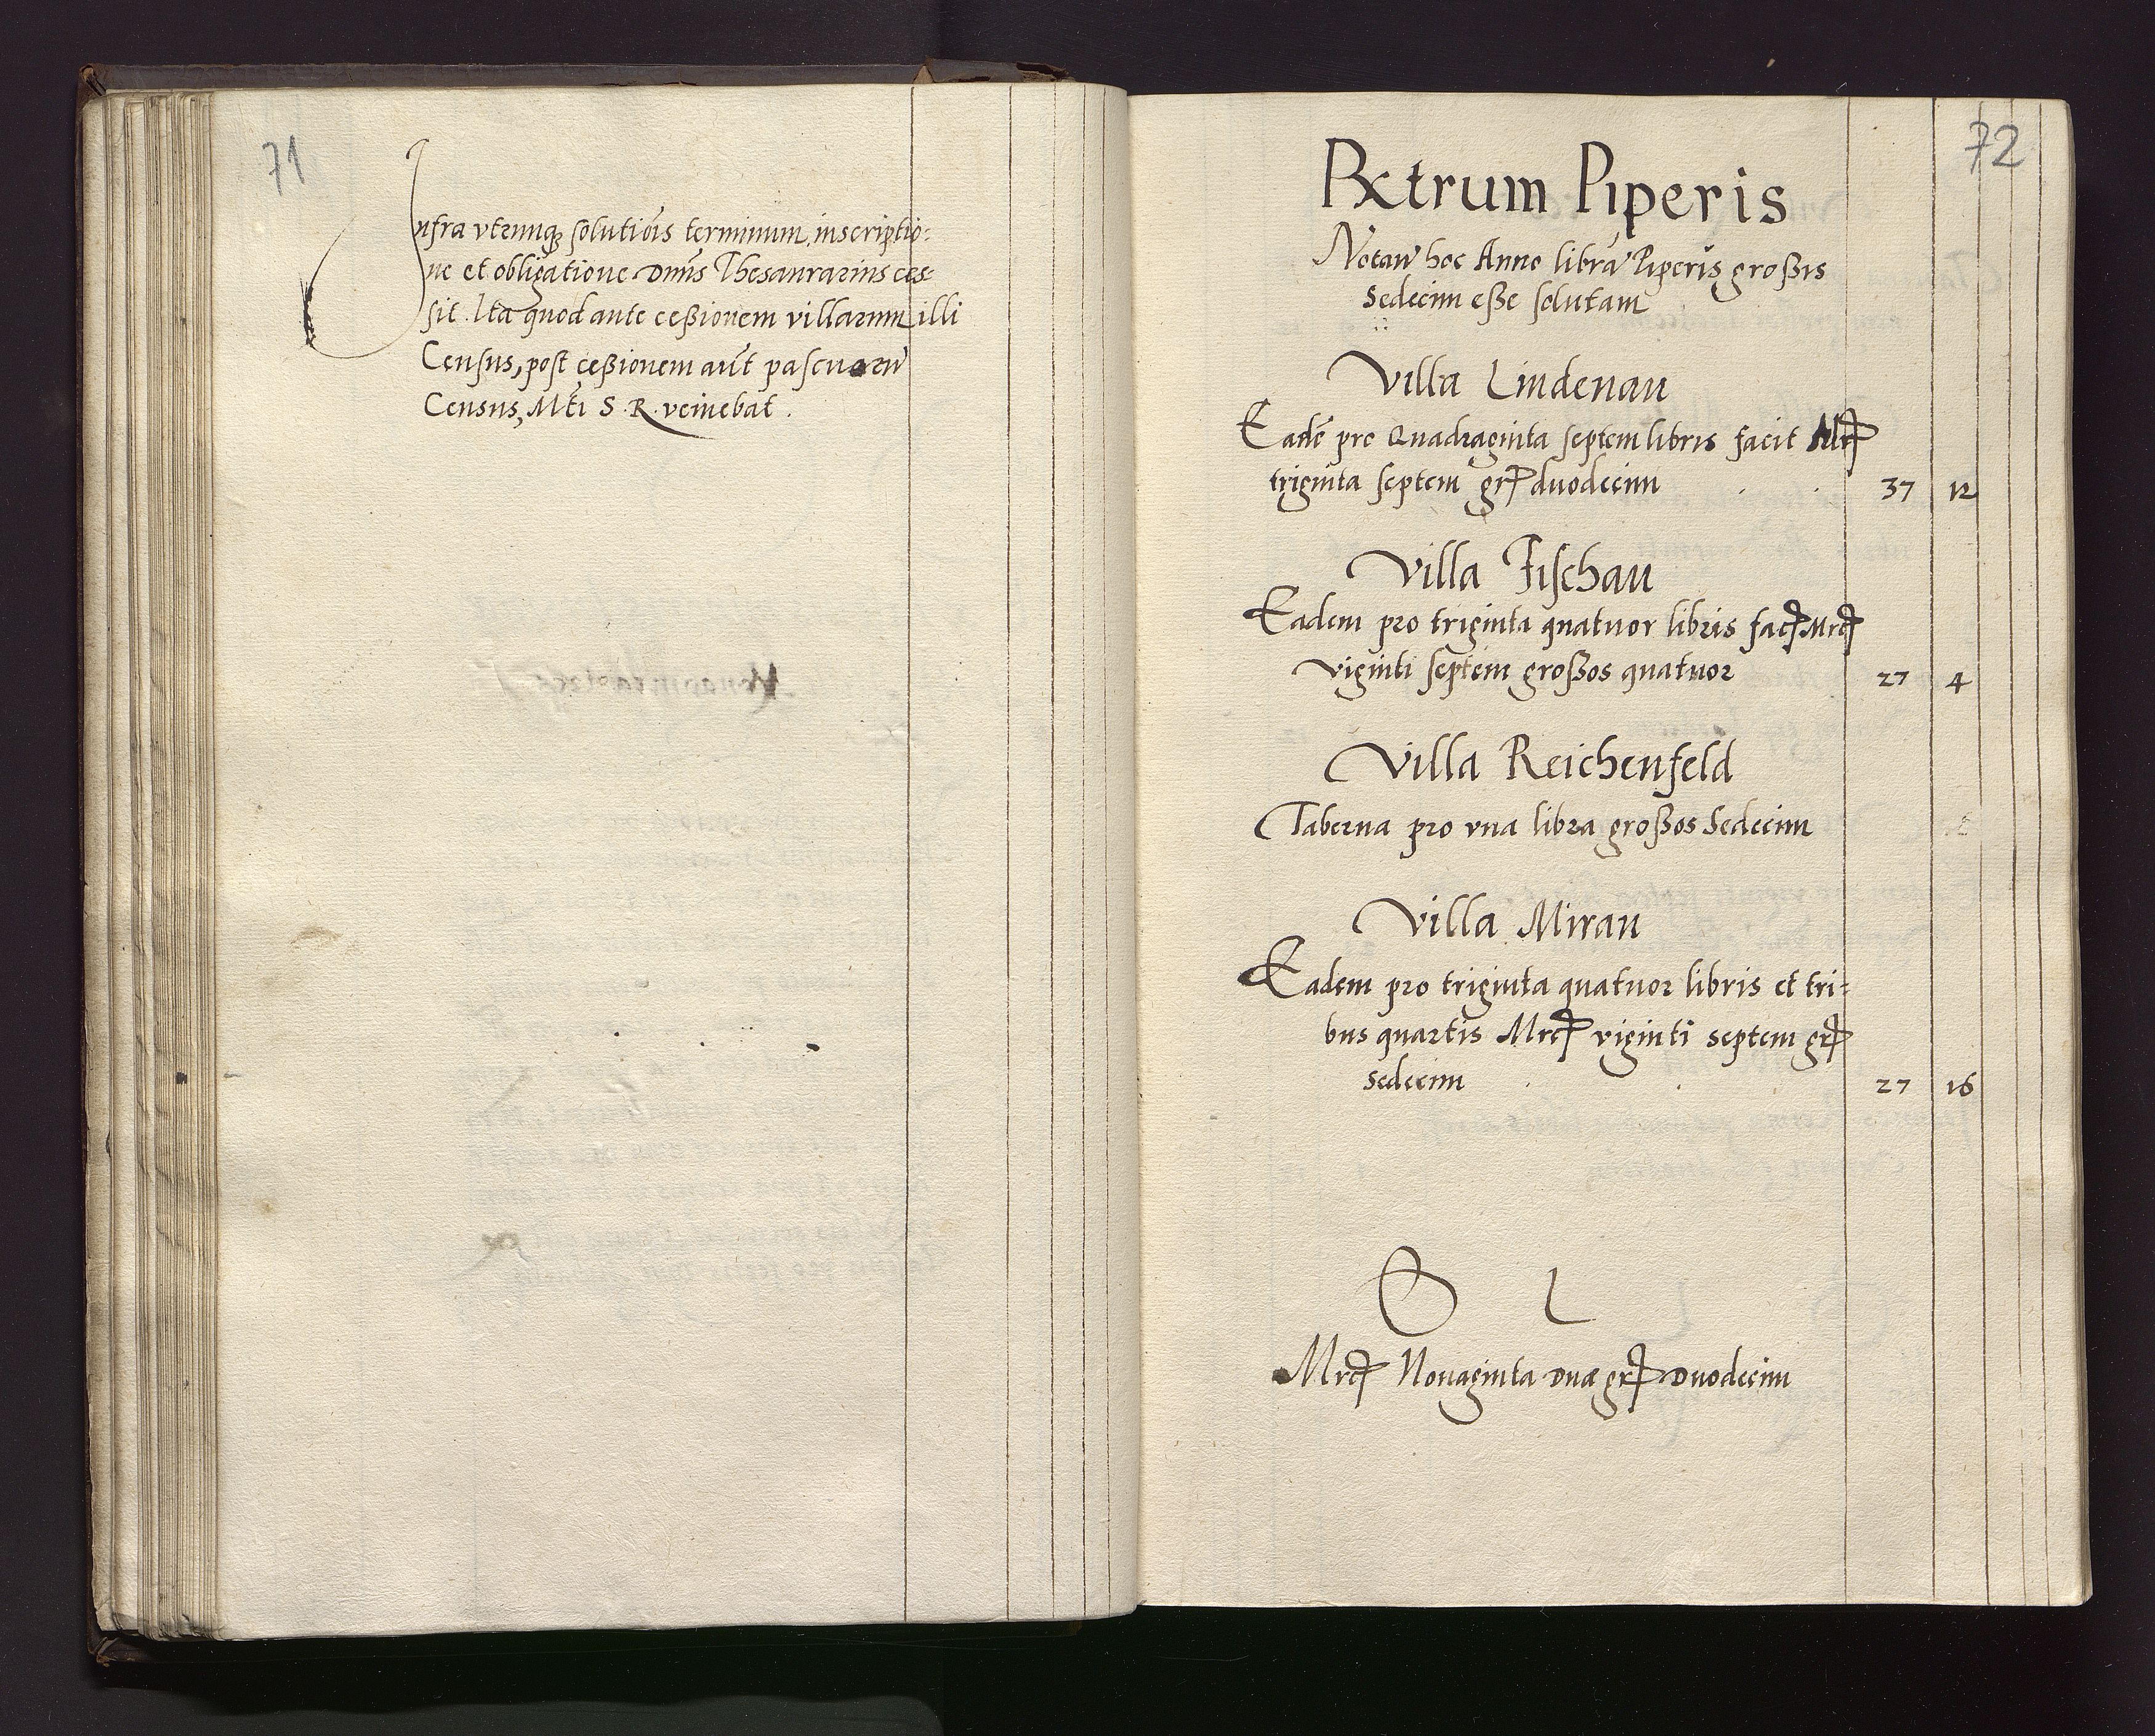 71
Infra vtrunq₃ solutiōis terminum, inscriptio⸗
ne et obligatione Dn̄us Thesaurarius ces⸗
sit. Ita quod ante ceßionem villarum illi
Census, post ceßionem aūt pascuarū
Census, Mti S. R. veniebat.
72
Rctrum Piperis
Notan̄ hoc Anno librā Piperis großis
Sedecim eße solutam
Villa Lindenau
Eadē pro Quadraginta septem libris facit Mrc
triginta septem gr duodecim . . 37 12
Villa Fischau
Eadem pro triginta quatuor libris fac Mrc
viginti septem großos quatuor 27 4
Villa Reichenfeld
Taberna pro vna libra großos Sedecim
Villa Mirau
Eadem pro triginta quatuor libris et tri⸗
bus quartis Mrc viginti septem gr
Sedecim . . 27 16
Mrc Nonaginta duæ gr Duodecim